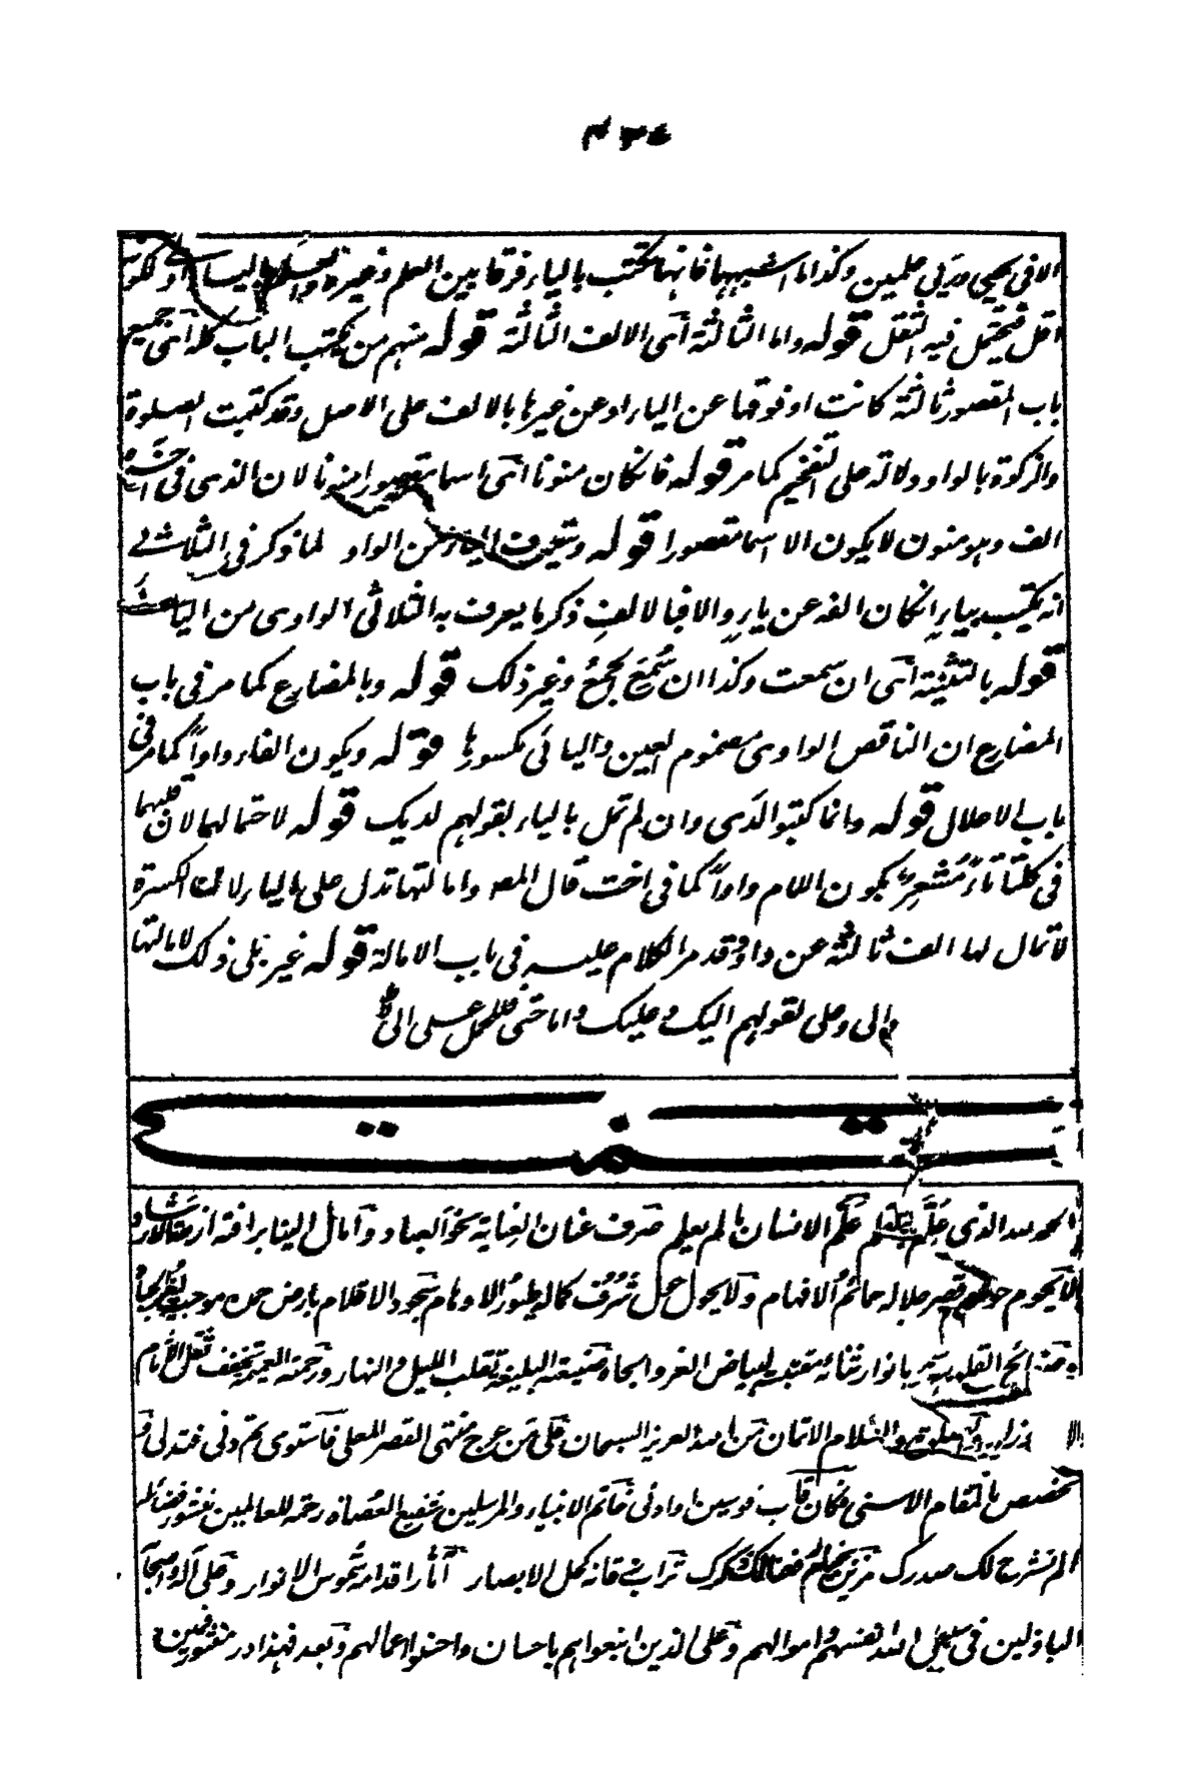 ٤٣٤
الا فى يحيى وريى علمين وكذا ما اشبههما فانها تكتب بالياء فرقا بين العلم وغيره
اقل فيحتمل فيه الثقل قوله واما الثالثة اى الالف الثالثة قوله منهم من يكتب الباب كله اى جميع
باب المقصور ثالثة كانت او فوقها عن الياء او عن غيرها بالالف على الاصل وقد كتبت الصلوة
والزكوة بالواو دلالة على التفخيم كما مر قوله فان كان منونا اى اسما مقصورا منونا لان الذى فى اخره
الف وهو منون لا يكون الا اسما مقصورا قوله وتعرف الياء من الواو لما ذكر فى الثلاثى
انه يكتب بياء ان كان الفه عن ياء والا فبالالف ذكر ما يعرف به الثلاثى الواوى من اليائى
قوله بالتثنية اى ان سمعت وكذا ان سُمِعَ الجمع وغير ذلك قوله وبالمضارع كما مر فى باب
المضارع ان الناقص الواوى مضموم العين واليائى مكسورها قوله وبكون الفاء واوا كما مر فى
باب الاعلال قوله وانما كتبوا لدى وان لم تمل بالياء لقولهم لديك قوله لاحتمالهما لان قلبهما
فى كلتا تاءً مُشعِر بكون اللام واوا كما فى اخت قال المصـ واما لتها تدل على الياء لان الكسرة
لا تمال لها الف ثالثة عن واو وقد مر الكلام عليه فى باب الامالة قوله غير بلى وذلك لامالتها
والى وعلى لقولهم اليك وعليك واما حتى فللحمل على الى
تمت
الحمد لله الذى علم بالقلم علم الانسان ما لم يعلم صرف عنان العناية نحو العباد وامال الينا برافته
لا يحوم حول قصر جلاله حمائم الافهام ولا يحول حول شرف كماله طيور الاوهام سجود الاقلام بارض
بانوار ثنائه مقتبسة لبياض الغر والجاه صنيعته البليغة تقلب الليل والنهار ورحمته العميمة تخفف ثقل
والسلام الاتمان من الله العزيز السبحان على من عرج منتهى القصر المعلى فاستوى ثم دنى فتدلى
خصص بالمقام الاسنى فكان قاب قوسين او ادنى خاتم الانبياء والمرسلين شفيع العصاة رحمة للعالمين
الم نشرح لك صدرك مزين ورفعنا لك ذكرك تراب قانه كحل الابصار آثار اقدامه شموس الانوار وعلى آله واصحابه
الباذلين فى سبيل الله انفسهم واموالهم وعلى الذين اتبعوهم باحسان واحسنوا اعمالهم وبعد فهذا